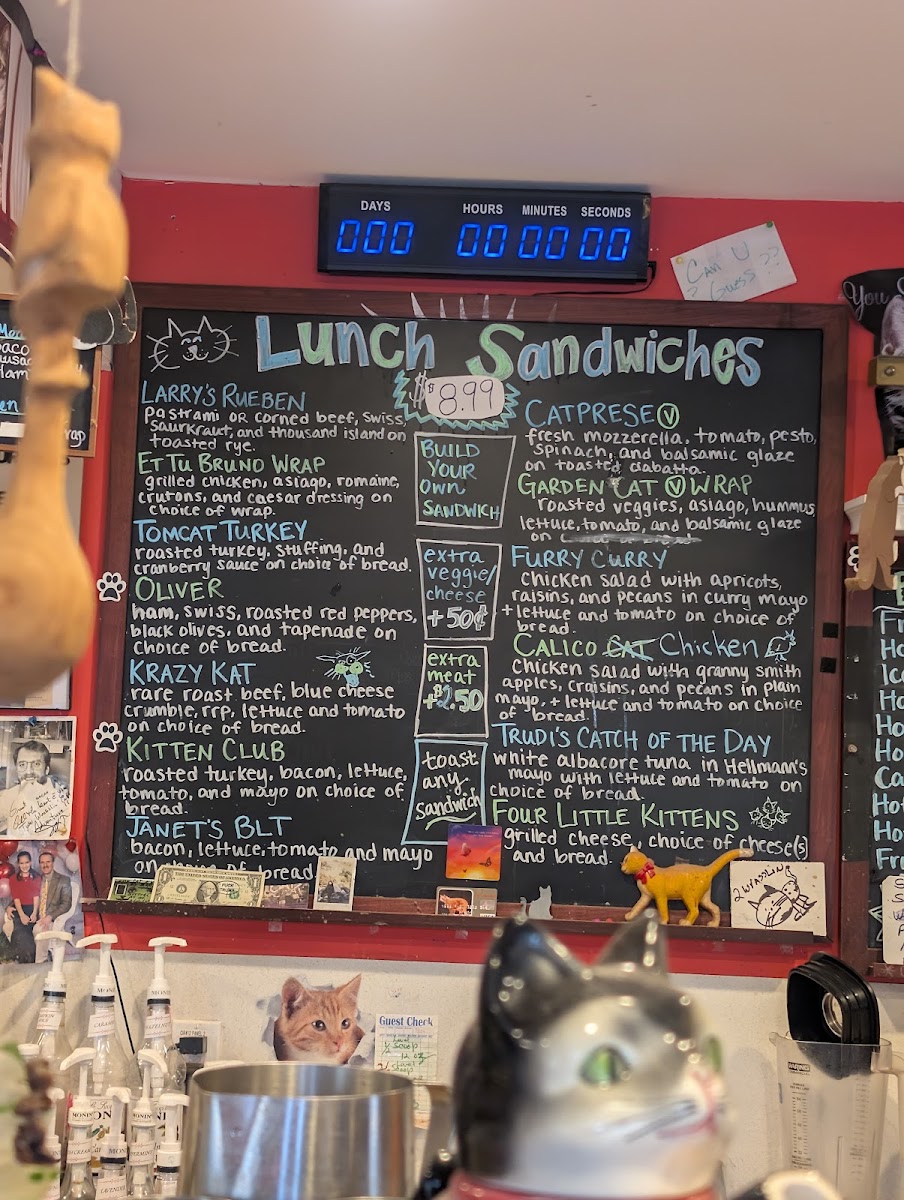 DAYS HOURS MINUTES SECONDS
000 00 00 00
Can U
? Guess ??
You
Lunch Sandwiches
$8.99
LARRY'S RUEBEN
Pastrami or corned beef, swiss,
saurkraut, and thousand island on
toasted rye.
ET TU BRUNO WRAP
grilled chicken, asiago, romaine,
crutons, and caesar dressing on
choice of wrap.
TOMCAT TURKEY
roasted turkey, stuffing, and
cranberry sauce on choice of bread.
OLIVER
ham, swiss, roasted red peppers,
black olives, and tapenade on
choice of bread.
KRAZY KAT
rare roast beef, blue cheese
crumble, rrp, lettuce and tomato
on choice of bread.
KITTEN CLUB
roasted turkey, bacon, lettuce,
tomato, and mayo on choice of
bread.
JANET'S BLT
bacon, lettuce, tomato and mayo
on choice of bread
BUILD
YOUR
OWN
SANDWICH
extra
veggie/
cheese
+50¢
extra
meat
+$2.50
toast
any
sandwich
CATPRESE V
fresh mozzerella, tomato, pesto,
spinach, and balsamic glaze
on toasted ciabatta.
GARDEN CAT V WRAP
roasted veggies, asiago, hummus
lettuce, tomato, and balsamic glaze
on
FURRY CURRY
chicken salad with apricots,
raisins, and pecans in curry mayo
+ lettuce and tomato on choice of
bread.
CALICO CAT Chicken
chicken salad with granny smith
apples, craisins, and pecans in plain
mayo, + lettuce and tomato on choice
of bread.
TRUDI'S CATCH OF THE DAY
white albacore tuna in Hellmann's
mayo with lettuce and tomato on
choice of bread.
FOUR LITTLE KITTENS
grilled cheese, choice of cheese(s)
and bread.
Guest Check
MONIN